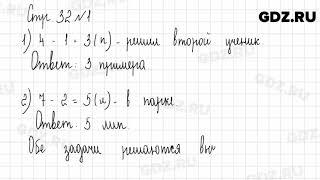 GDZ.RU
Стр 32 №1
1) 4 - 1 = 3 (п) - решил второй ученик
Ответ: 3 примера
2) 7 - 2 = 5 (л) - в парке
Ответ: 5 лип.
Обе задачи решаются вы